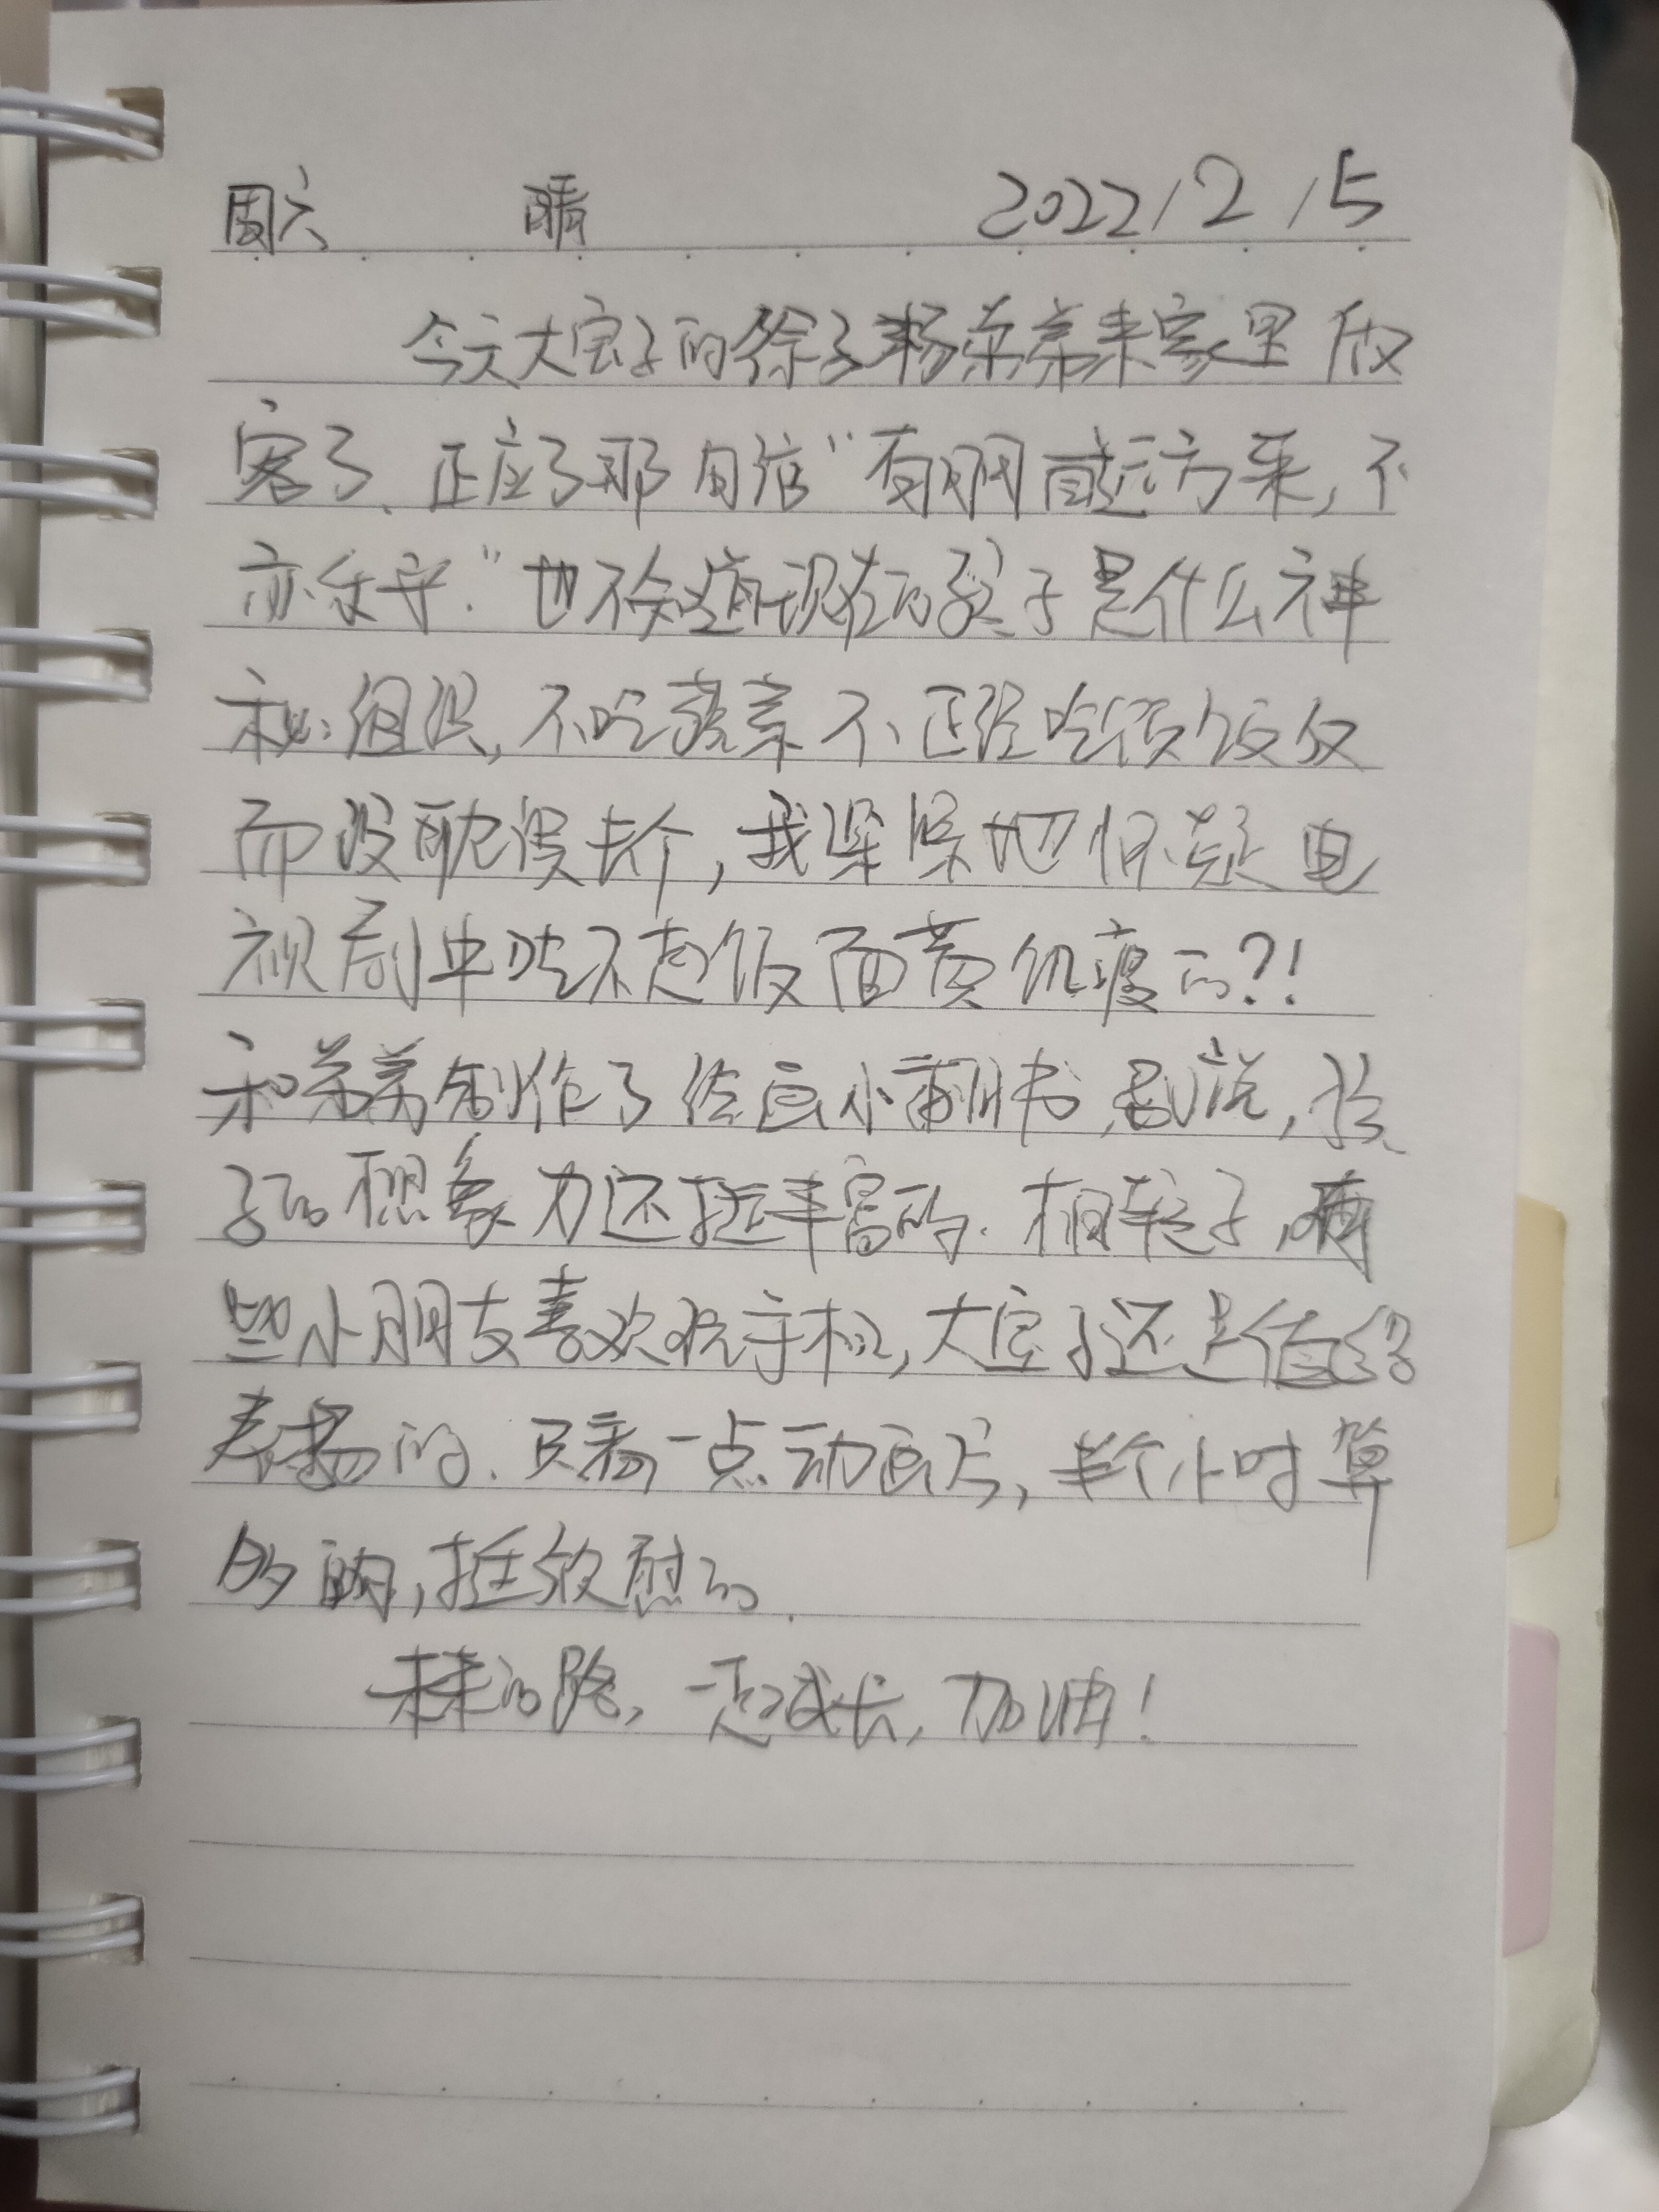 周六 晴 2022/2/5
今天大宝子的徐子杨来家里做
客了、正应了那句话“有朋自远方来,不
亦乐乎.”也不知道现在的孩子是什么神
秘组织,不吃蔬菜不正经吃顿饭反
而没耽误长个,我深深地怀疑电
视剧中吃不起饭面黄饥瘦的?!
和弟弟制作了绘画小翻书,别说,孩
子的想象力还挺丰富的.相较于,
些小朋友喜欢玩手机,大宝子还是值得
表扬的.只看一点动画片,半个小时算
多的,挺欣慰的.
未来的路,一起成长,加油!